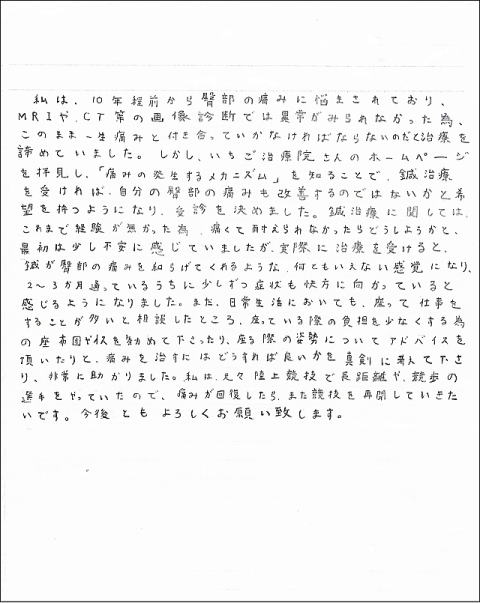 私は、10年程前から臀部の痛みに悩まされており、
MRIや、CT等の画像診断では異常がみられなかった為、
このまま一生痛みと付き合っていかなければならないのだと治療を
諦めていました。しかし、いちご治療院さんのホームページ
を拝見し、「痛みの発生するメカニズム」を知ることで、鍼治療
を受ければ、自分の臀部の痛みも改善するのではないかと希
望を持つようになり、受診を決めました。鍼治療に関しては、
これまで経験が無かった為、痛くて耐えられなかったらどうしようかと、
最初は少し不安に感じていましたが、実際に治療を受けると、
鍼が臀部の痛みを和らげてくれるような、何ともいえない感覚になり、
2～3か月通っているうちに少しずつ症状も快方に向かっていると
感じるようになりました。また、日常生活においても、座って仕事を
することが多いと相談したところ、座っている際の負担を少なくする為
の座布団や枕を勧めて下さったり、座る際の姿勢についてアドバイスを
頂いたりと、痛みを治すにはどうすれば良いかを真剣に考えて下さ
り、非常に助かりました。私は、元々陸上競技で長距離や、競歩の
選手をやっていたので、痛みが回復したら、また競技を再開していきた
いです。今後ともよろしくお願い致します。